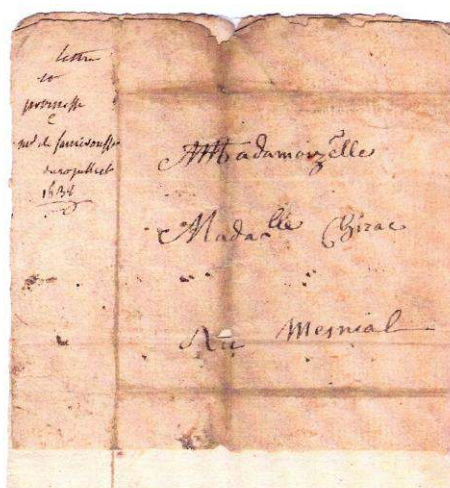 lettre
et
promesse
mr de
juillet
Madamoyzelle
Madalle Chirac
Au Mesnial